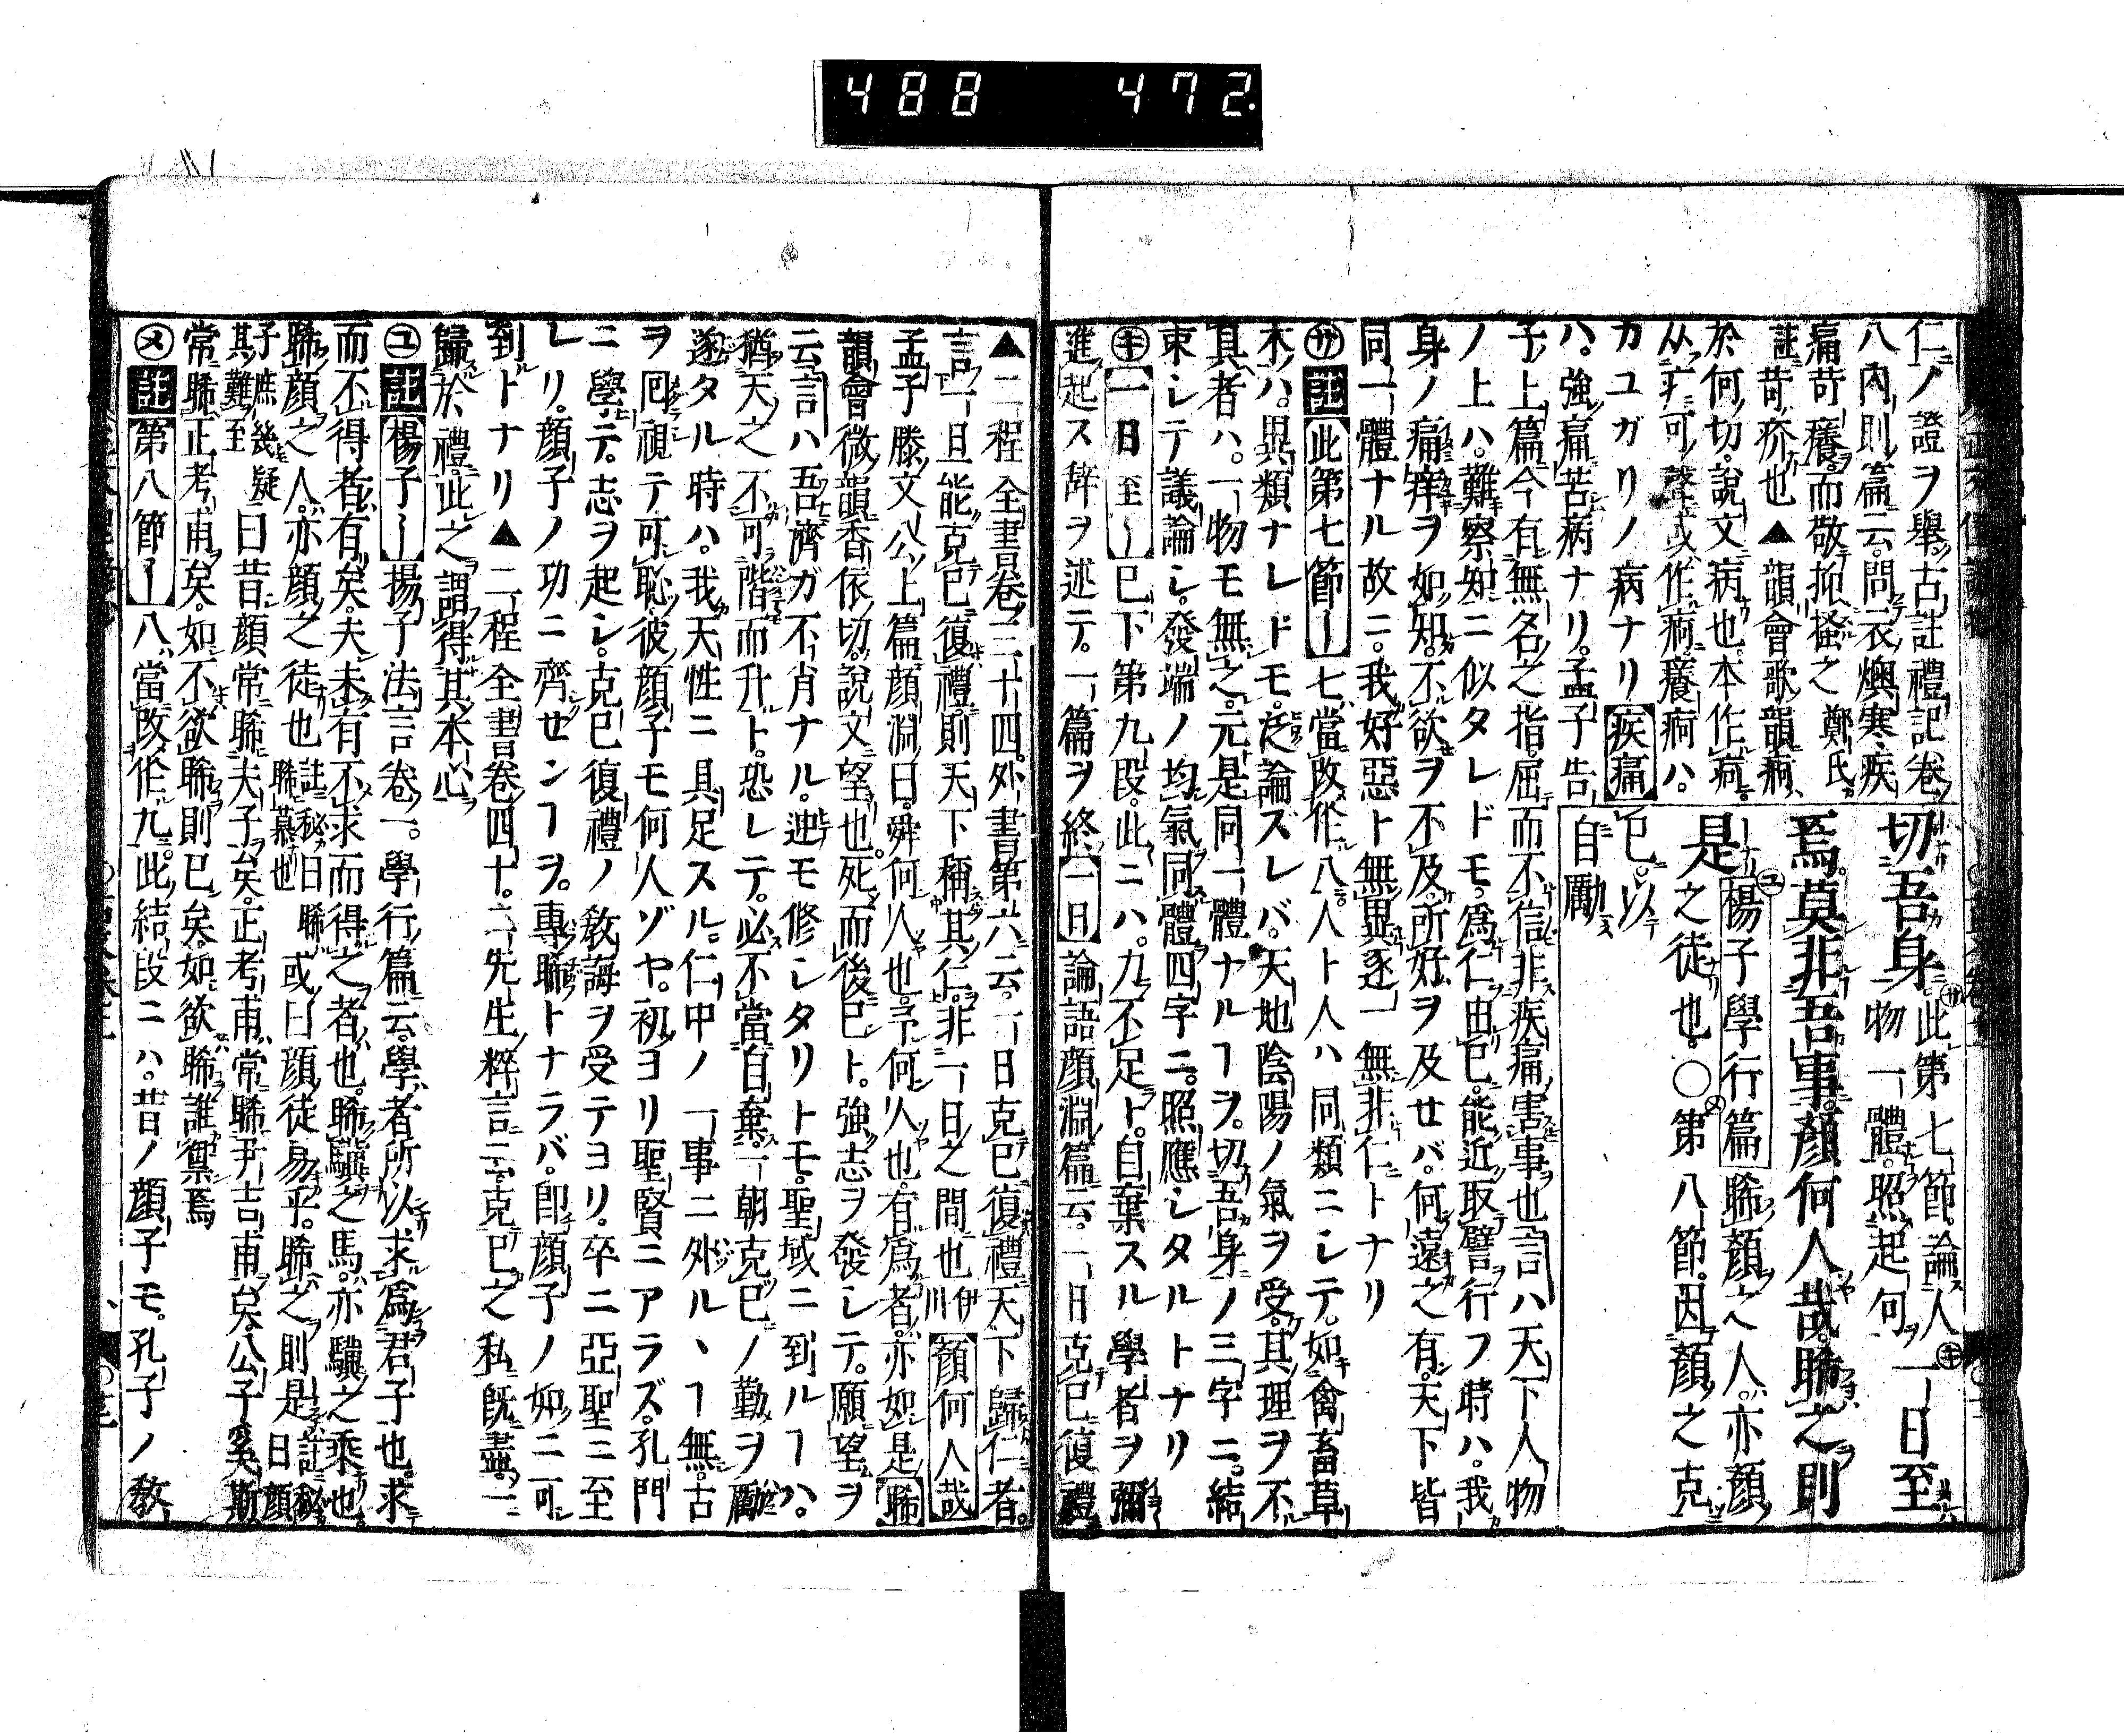 488 472.
仁ノ證ヲ擧。古註禮記卷
八內則篇云。問衣燠寒、疾
痛苛癢。而敬抑搔之 鄭氏
註苛疥也▲韻會歌韻痾
於何切。說文病也。本作疴。
从疒可聲。或作痾。癢痾ハ。
カユガリノ病ナリ 疾痛
ハ。強痛苦病ナリ。孟子告
切吾身。此第七節。論人物一體。照起句。一日至
焉。莫非吾事。顏何人哉。睎之則
是 楊子學行篇 睎顏之人。亦顏
之徒也。○第八節。因顏之克
已。以
自勵
子上篇今有無名之指。屈而不信。非疾痛害事也 言ハ天下人物
ノ上ハ。難察知ニ似タレドモ。爲仁由已。能近取譬行フ時ハ。我
身ノ痛痒ヲ如知。不欲ヲ不及。所好ヲ及セバ。何遠之有。天下皆
同一體ナル故ニ。我好惡ト無異逐一無非仁トナリ
サ 註 此第七節ー 七、當改作八。人ト人ハ同類ニシテ。如禽畜草
木ハ。異類ナレドモ。泛論ズレバ。天地陰陽ノ氣ヲ受。其理ヲ不
具者ハ。一物モ無之。元是同一體ナルヿヲ。切吾身ノ三字ニ。結
束シテ議論シ。發端ノ均氣同體四字ニ。照應シタルトナリ
キ 一日至ー 已下第九段。此ニハ。九不足ト。自棄スル學者ヲ彌
進起ス辞ヲ述テ。一篇ヲ終 一日 論語顏淵篇云。一日克已復禮
▲二程全書卷三十四。外書第六云。一日克已復禮天下歸仁者。
言一旦能克已復禮則天下稱其仁。非一日之間也 伊川 顏何人哉
孟子滕文公上篇顏淵曰。舜何人也。予何人也。有爲者亦如是 睎
韻會微韻香依切。說文望也。死而後已ト。強志ヲ發シテ。願望ヲ
云 言ハ吾儕ガ不肖ナル。迚モ修シタリトモ。聖域ニ到ルヿハ。
猶天之不可階而升ト。恐レテ。必不當自棄。一朝克已ノ勤ヲ勵
遂タル時ハ。我天性ニ具足スル。仁中ノ一事ニ外ルヽヿ無。古
ヲ囘視テ可恥。彼顏子モ何人ゾヤ。初ヨリ聖賢ニアラズ。孔門
ニ學テ。志ヲ起シ。克已復禮ノ敎誨ヲ受テヨリ。卒ニ亞聖ニ至
レリ。顏子ノ功ニ齊センヿヲ。專睎トナラバ。卽顏子ノ如ニ可
到トナリ▲二程全書卷四十。二先生粹言云。克已之私既盡。一
歸於禮此之謂得其本心
ユ 註 楊子ー 揚子法言卷一。學行篇云。學者所以求爲君子也。求
而不得者有矣。夫未有不求而得之者也。睎驥之馬。亦驥之乘也。
睎顏之人。亦顏之徒也 註秘曰睎睎慕也 或曰顏徒易乎。睎之則是 註秘曰顏
子庶幾疑其難至 曰昔顏常睎夫子矣。正考甫常睎尹吉甫矣。公子奚斯
常睎正考甫矣。如不欲睎則已矣。如欲睎誰禦焉
メ 註 第八節ー 八、當改作九。此結段ニハ。昔ノ顏子モ。孔子ノ敎